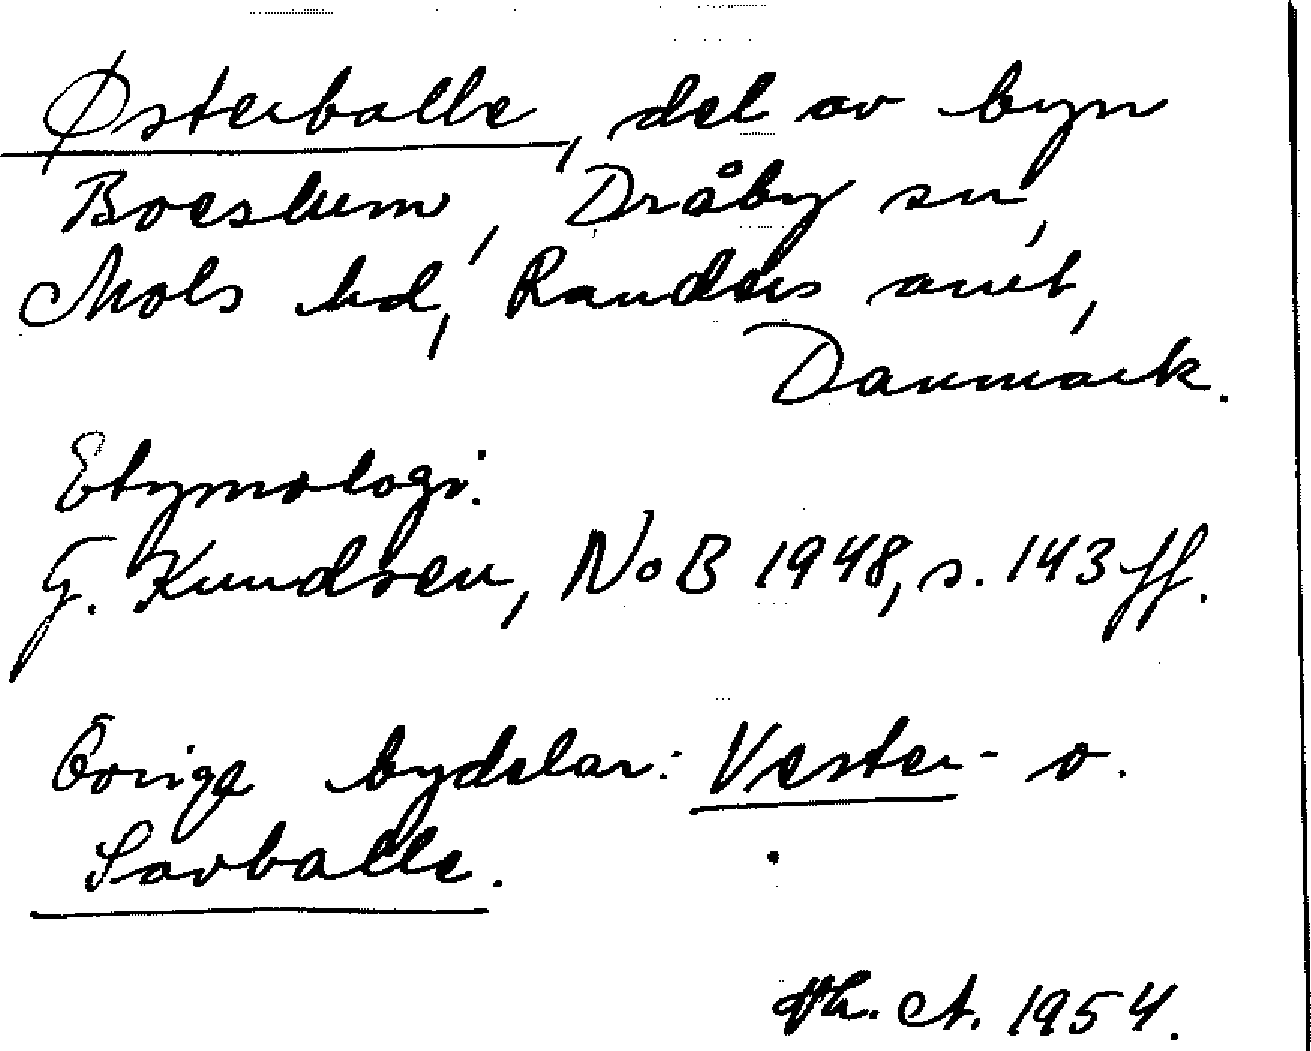 Østerballe, del av byn
Boeslum, Dråby sn,
Mols hd, Randers amt,
Danmark.
Etymologi:
G. Knudsen, NoB 1948, s. 143 ff.
Övriga bydelar: Vester- o.
Savballe.
Th. A. 1954.